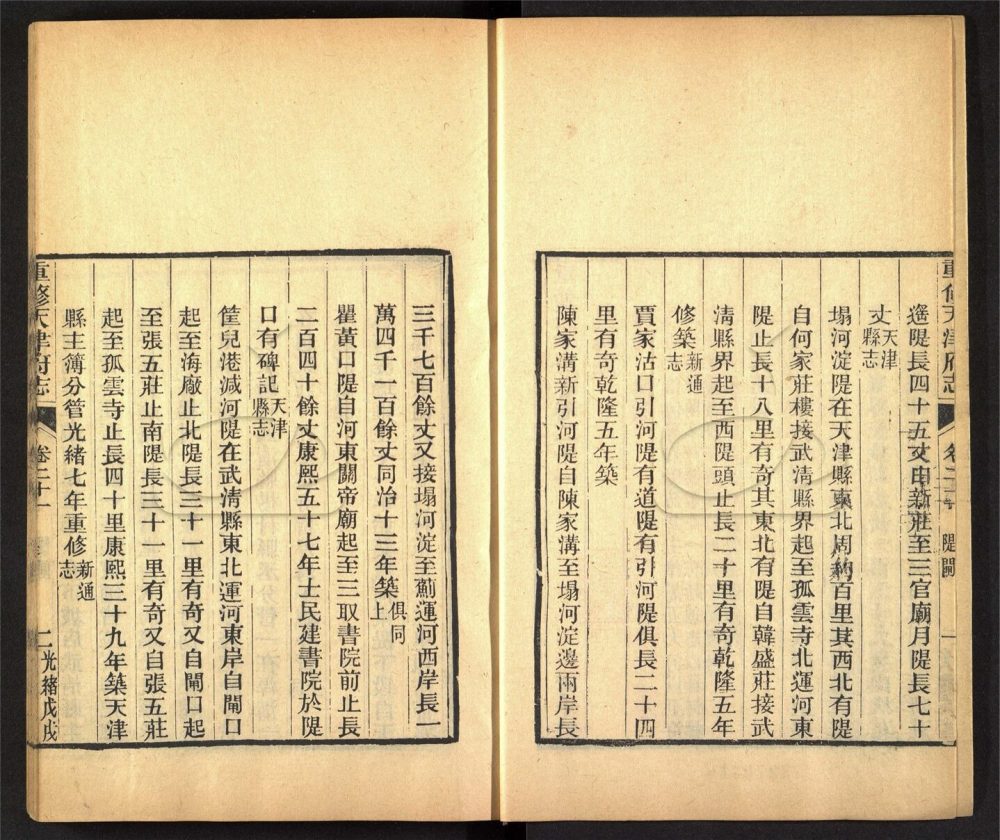 遙隄長四十五丈由新莊至三官廟月隄長七十
丈天津縣志
塌河淀隄在天津縣東北周約百里其西北有隄
自何家莊樓接武淸縣界起至孤雲寺北運河東
隄止長十八里有奇其東北有隄自韓盛莊接武
淸縣界起至西隄頭止長二十里有奇乾隆五年
修築新通志
賈家沽口引河隄有道隄有引河隄俱長二十四
里有奇乾隆五年築
陳家溝新引河隄自陳家溝至塌河淀邊兩岸長
重修天津府志
卷二十
隄閘
一
三千七百餘丈又接塌河淀至薊運河西岸長一
萬四千一百餘丈同治十三年築俱同上
瞿黃口隄自河東關帝廟起至三取書院前止長
二百四十餘丈康熙五十七年士民建書院於隄
口有碑記天津縣志
筐兒港減河隄在武淸縣東北運河東岸自閘口
起至海廠止北隄長三十一里有奇又自閘口起
至張五莊止南隄長三十一里有奇又自張五莊
起至孤雲寺止長四十里康熙三十九年築天津
縣主簿分管光緖七年重修新通志
重修天津府志
卷二十一
二
光緖戊戌